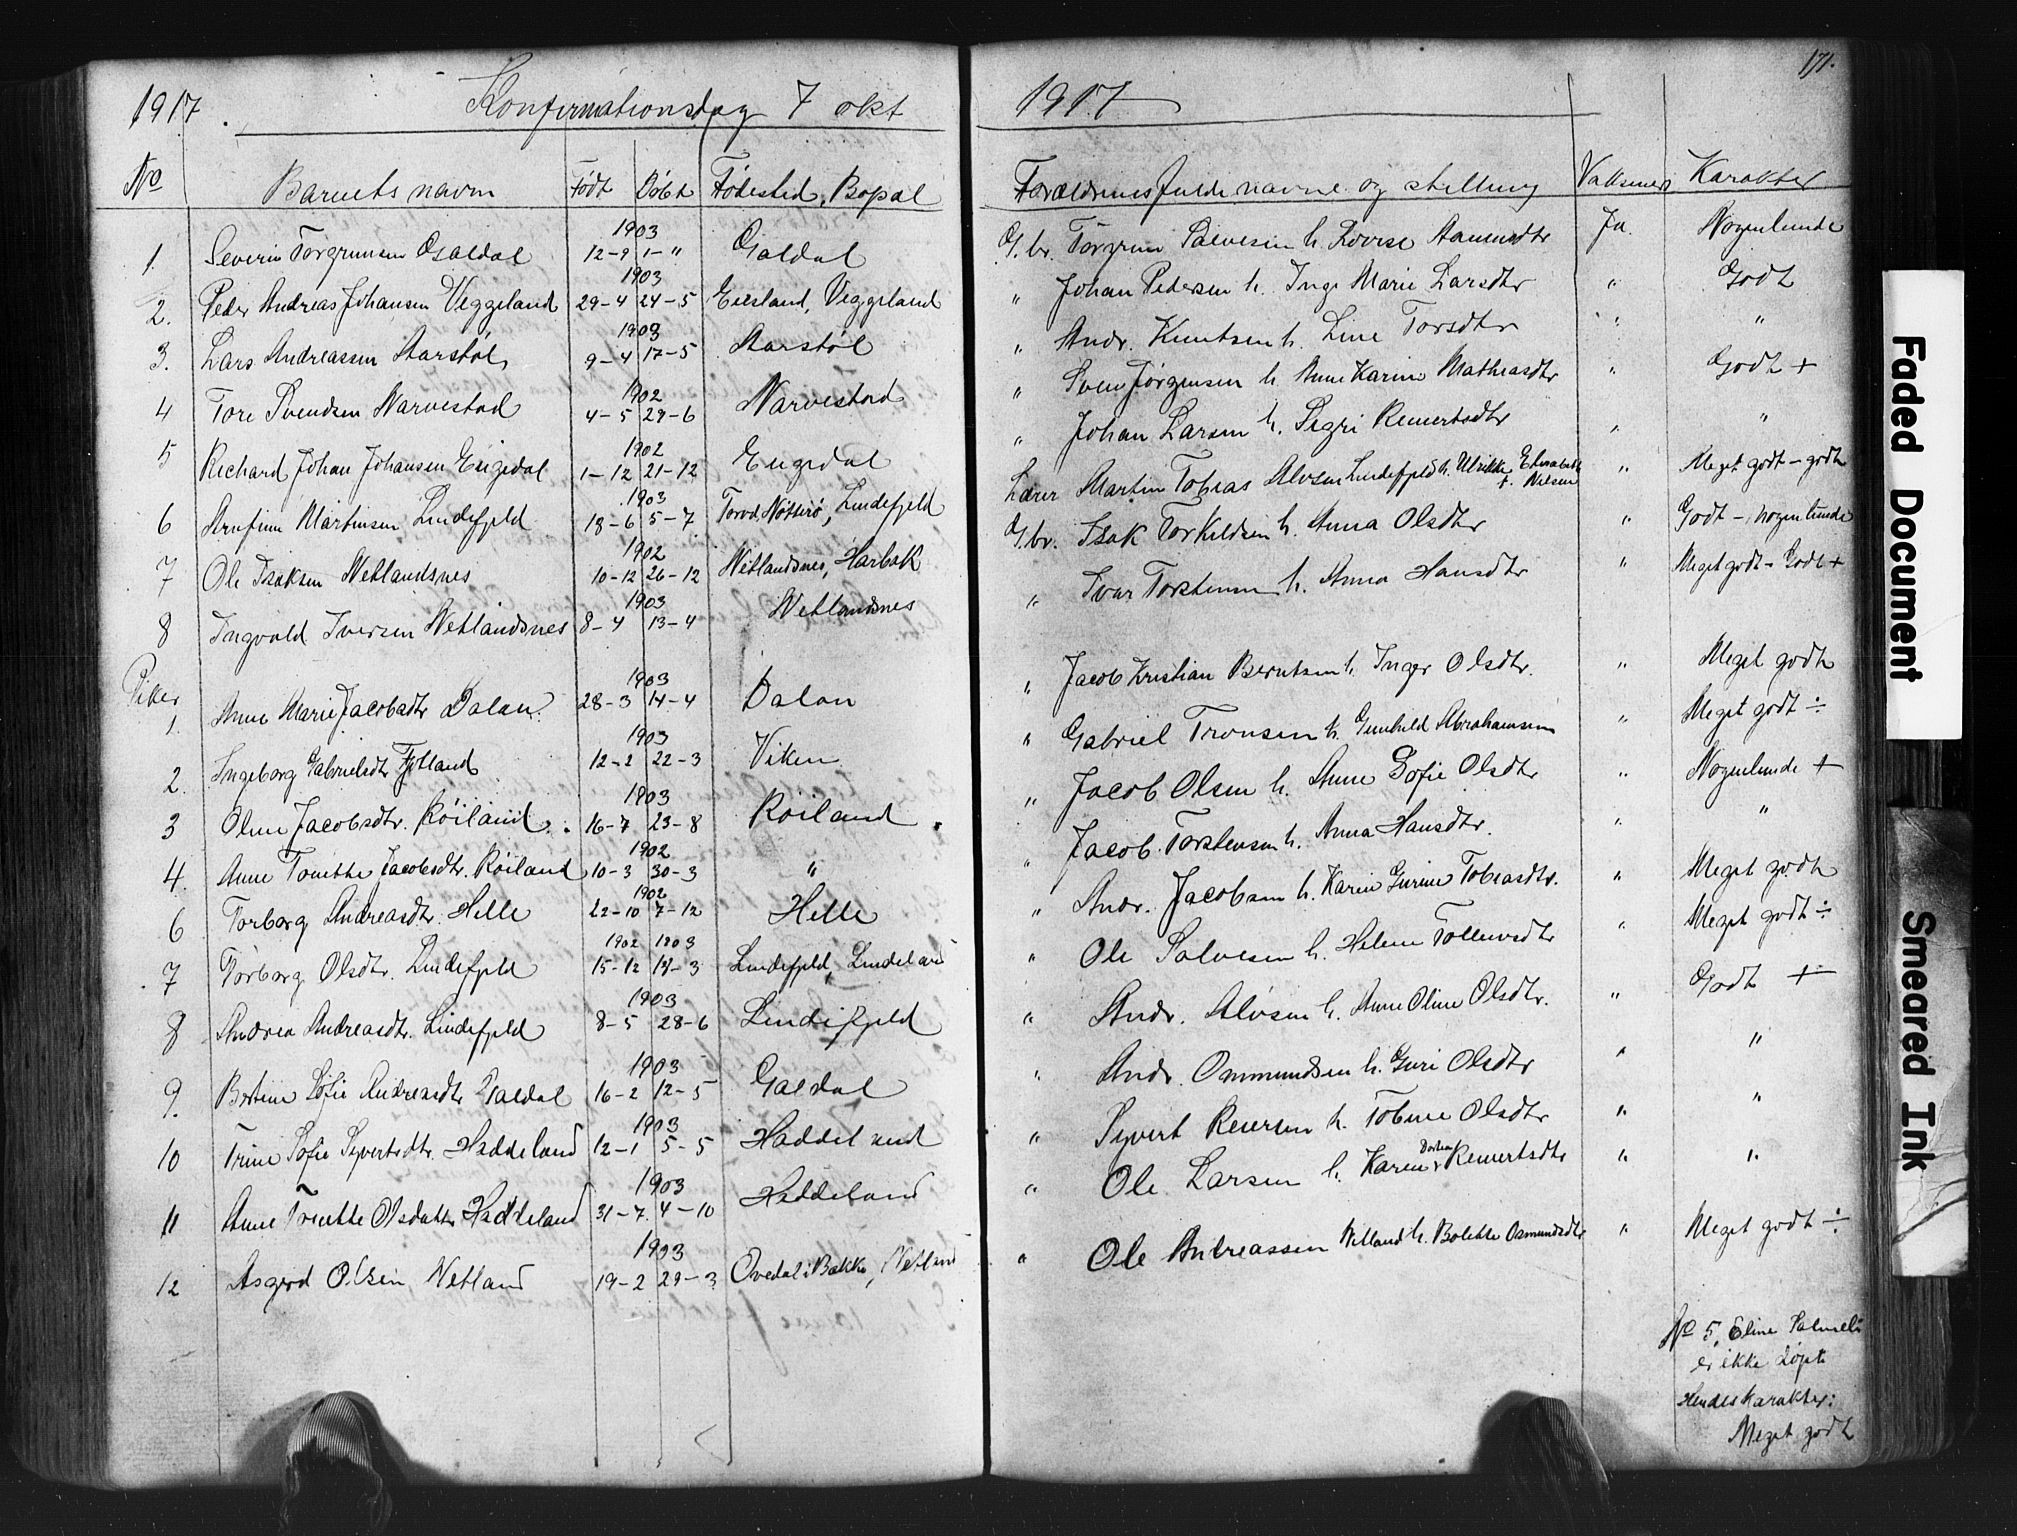 1917. Konfirmationsdag 7 okt
No Barnets navn Født Døbt Fødested, Bopæl
1903
1. Severin Torgrimsen Galdal 12-9 1-" Galdal
1903
2. Peder Andreas Johansen Veggeland 29-4 24-5 Eiesland, Veggeland
1903
3. Lars Andreassen Aarstøl 9-4 17-5 Aarstøl
1902
4 Tore Svendsen Narvestad 4-5 29-6 Narvestad
1902
5 Richard Johan Johansen Eigedal 1-12 21-12 Eigedal
1903
6 Martinsen Lindefjeld 18-6 5-7 Nøtterø, Lindefjeld
1902
7 Ole Isaksen Netlandsnes 10-12 26-12 Netlandsnes, Harbak
1903
8 Ingvald Iversen Netlandsnes 8-4 13-4 Netlandsnes
Piker
1903
1. Anne Marie Jacobsdtr Dalan. 28-3 14-4 Dalan
1903
2. Ingeborg Gabrielsdtr Fjotland 12-2 22-3 Viken
1903
3 Oline Jacobsdtr. Røiland. 16-7 23-8 Røiland
1902
4. Anne Tonette Jacobsdtr. Røiland 10-3 30-3 "
1902
6 Torborg Andreasdtr. Helle 22-10 7-12 Helle
1902 1903
7 Torborg Olsdtr. Lindefjeld 15-12 14-3 Lindefjeld, Lindeland
1903
8 Andrea Andreasdtr. Lindefjeld 8-5 28-6 Lindefjeld
1903
9. Bertine Sofie Andreasdtr Galdal 16-2 12-5 Galdal
1903
10 Trine Sofie Syvertsdtr. Haddeland 12-1 5-5 Haddeland
1903
11 Anne Trinette Olsdattr Haddeland 31-7. 4-10 Haddeland
1903
12 Asgerd Olsen Netland 19-2 29-3 Øvedal i Bakke, Netland
171.
1917
Forældrenes fulde navne og stilling Vaksiner Karakter
G.br. Torgrim Salvesen h. Lovise Aanensdtr Ja. Nogenlunde
" Johan Pedersen h. Inge Marie Larsdtr " Godt
" Andr. Knutsen h. Line Torsdtr " "
" Sven Jørgensen h. Anne Karine Mathiasdtr " Godt +
" Johan Larsen h. Sigri Reinertsdtr " "
Lærer Martin Tobias Alvsen Lindefjeld h. Ulrikke Elisabeth f. Nilsen " Meget godt - godt
G.br. Isak Torkildsen h. Anna Olsdtr " Godt - nogenlunde
" Ivar Torstensen h. Anna Hansdtr " Meget godt - Godt +
" Jacob Kristian Berntsen h. Inger Olsdtr. " Meget godt
" Gabriel Tronsen h. Gunhild Abrahamsen " Meget godt ÷
" Jacob Olsen h. Anne Sofie Olsdtr " Nogenlunde +
" Jacob Torstensen h. Anna Hansdtr. " "
" Andr. Jacobsen h. Karen Gurine Tobiasdtr. " Meget godt
" Ole Salvesen h. Helene Tollevsdtr " Meget godt ÷
" Andr. Alvsen h. Anne Oline Olsdtr. " Godt +
" Andr. Ommundsen h. Guri Olsdtr " "
" Syvert Reiersen h. Tobine Olsdtr " "
" Ole Larsen h. Karen Dorthea Reinertsdtr " "
" Ole Andreassen Netland h. Bolette Osmundsdtr " Meget godt ÷
No 5. Eline
er ikke døpt
Hendes karakter:
Meget godt
Faded Document
Smeared Ink